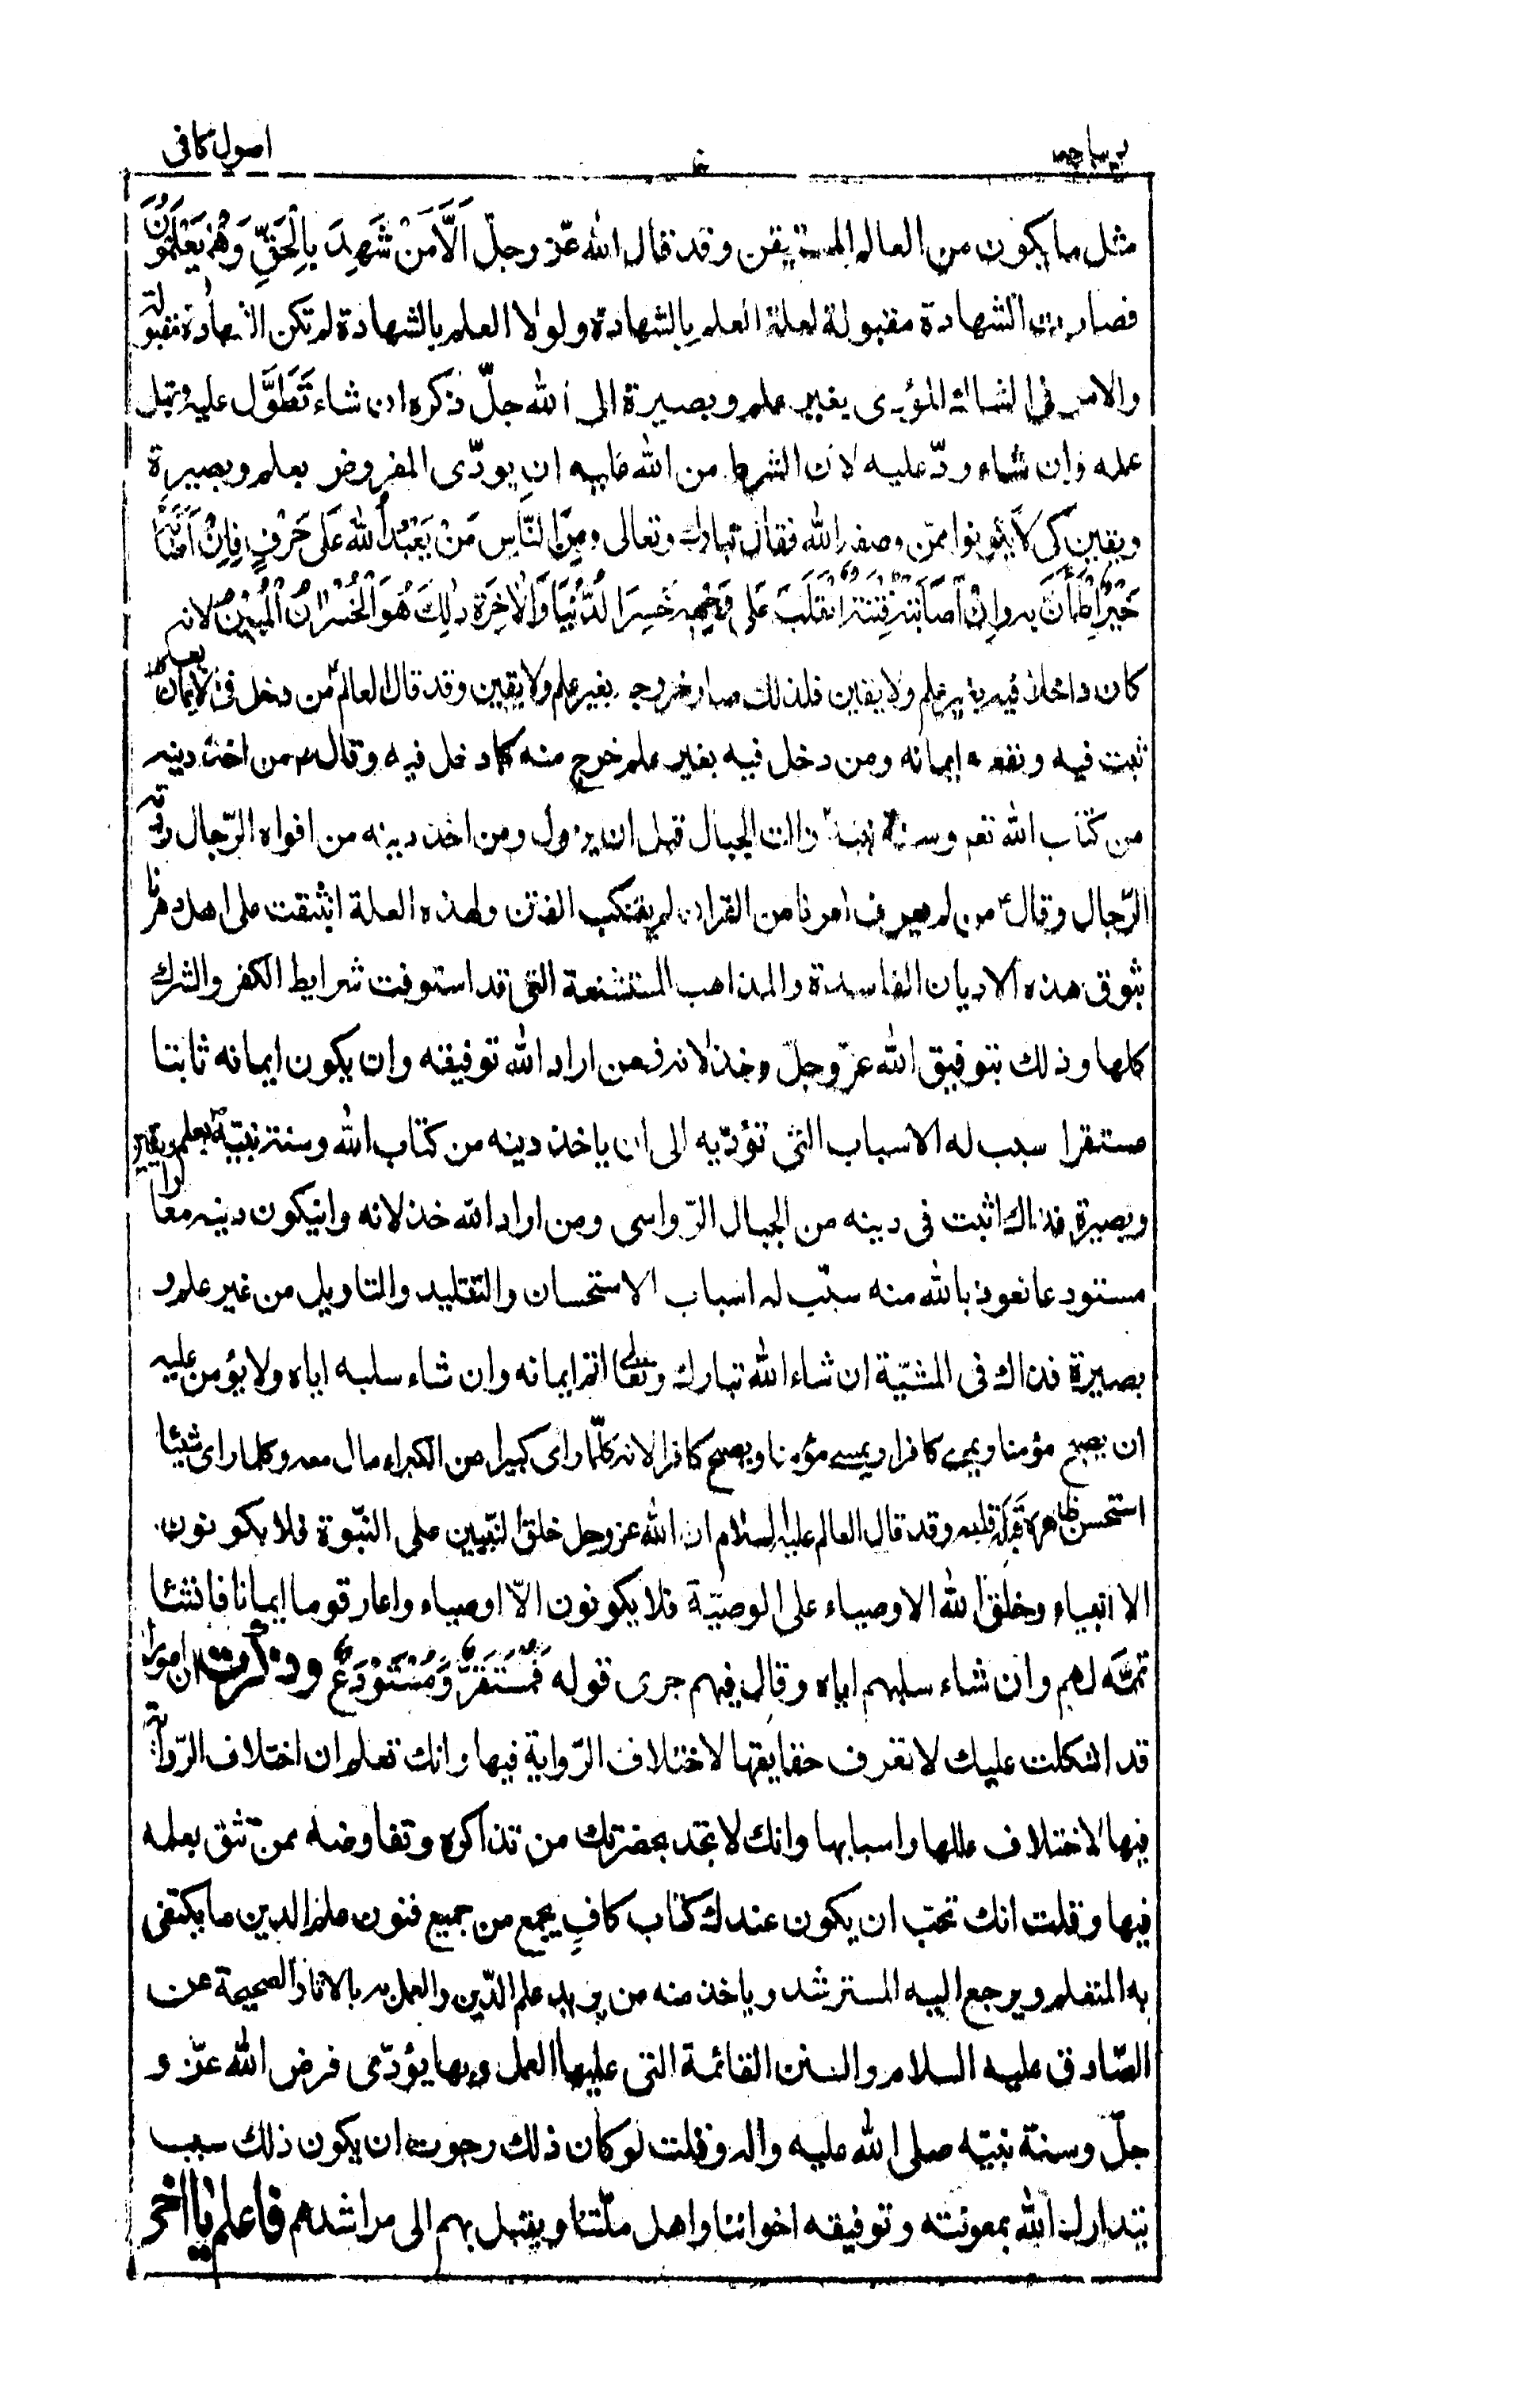 ديباجه
اصول كافى
مثل ما يكون من العالم المستيقن وقد قال الله عزّ وجلّ اَلَّا مَنْ شَهِدَ بِالْحَقِّ وَهُمْ يَعْلَمُونَ
فصارت الشهادة مقبولة لعلة العلم بالشهادة ولولا العلم بالشهادة لم تكن الشهادة مقبولة
والامر فى الشاك المؤدى بغير علم وبصيرة الى الله جلّ ذكره ان شاء تَطَوَّل عليه فقبل
عمله وان شاء ردّ عليه لان الشرط من الله عليه ان يودّى المفروض بعلم وبصيرة
ويقين كى لا يكونوا ممّن وصفه الله فقال تبارك وتعالى ومِنَ النَّاسِ مَنْ يَعْبُدُ اللهَ عَلى حَرْفٍ فَاِنْ اَصَابَهُ
خَيْرٌ اطْمَأَنَّ بِهِ وَاِنْ اَصَابَتْهُ فِتْنَةٌ انْقَلَبَ عَلى وَجْهِهِ خَسِرَ الدُّنْيَا وَالْاخِرَةَ ذلِكَ هُوَ الْخُسْرانُ الْمُبينُ لانه
كان داخلا فيه بغير علم ولا يقين فلذلك صار خروجه بغير علم ولا يقين وقد قال العالم ع من دخل فى الايمان بعلم
ثبت فيه ونفعه ايمانه ومن دخل فيه بغير علم خرج منه كما دخل فيه وقال ع من اخذ دينه
من كتاب الله تعم وسنة نبيه ص زالت الجبال قبل ان يزول ومن اخذ دينه من افواه الرّجال ردّته
الرّجال وقال ع من لم يعرف امرنا من القران لم يتنكب الفتن ولهذه العلة انبثقت على اهل دهرنا
بثوق هذه الاديان الفاسدة والمذاهب المستشنعة التى قد استوفت شرايط الكفر والشرك
كلها وذلك بتوفيق الله عزّ وجلّ وخذلانه فمن اراد الله توفيقه وان يكون ايمانه ثابتا
مستقرا سبب له الاسباب التى تؤدّيه الى ان ياخذ دينه من كتاب الله وسنة نبيّه ص بعلم ويقين
وبصيرة فذاك اثبت فى دينه من الجبال الرّواسى ومن اراد الله خذلانه وان يكون دينه معارا
مستودعا نعوذ بالله منه سبّب له اسباب الاستحسان والتقليد والتاويل من غير علم و
بصيرة فذاك فى المشيّة ان شاء الله تبارك وتعالى اتمّ ايمانه وان شاء سلبه اياه ولا يؤمن عليه
ان يصبح مؤمنا ويمسى كافرا ويمسى مؤمنا ويصبح كافرا لانه كلّما راى كبيرا من الكبراء مال معه وكلما راى شيئا
استحسن ظاهره قبله قلبه وقد قال العالم عليه السلام ان الله عز وجل خلق النبيين على النبّوة فلا يكونون
الا انبياء وخلق الله الاوصياء على الوصيّة فلا يكونون الاّ اوصياء واعار قوما ايمانا فان شاء
تممّه لهم وان شاء سلبهم اياه وقال فيهم جرى قوله فَمُسْتَقَرٌّ وَمُسْتَوْدَعٌ وذكرت ان امورا
قد اشكلت عليك لا تعرف حقايقها لاختلاف الرّواية فيها وانك تعلم ان اختلاف الرّواية
فيها لاختلاف عللها واسبابها وانك لا تجد بحضرتك من تذاكره وتفاوضه ممن تثق بعلمه
فيها وقلت انك تحبّ ان يكون عندك كتاب كافٍ يجمع من جميع فنون علم الدين ما يكتفى
به المتعلم ويرجع اليه المسترشد وياخذ منه من يريد علم الدّين والعمل به بالاثار الصحيحة عن
الصّادق عليه السلام والسنن القائمة التى عليها العمل وبها يؤدّى فرض الله عزّ و
جلّ وسنة نبيّه صلى الله عليه واله وقلت لو كان ذلك رجوت ان يكون ذلك سببا
يتدارك الله بمعونته وتوفيقه اخواننا واهل ملّتنا ويقبل بهم الى مراشدهم فاعلم يا اخى